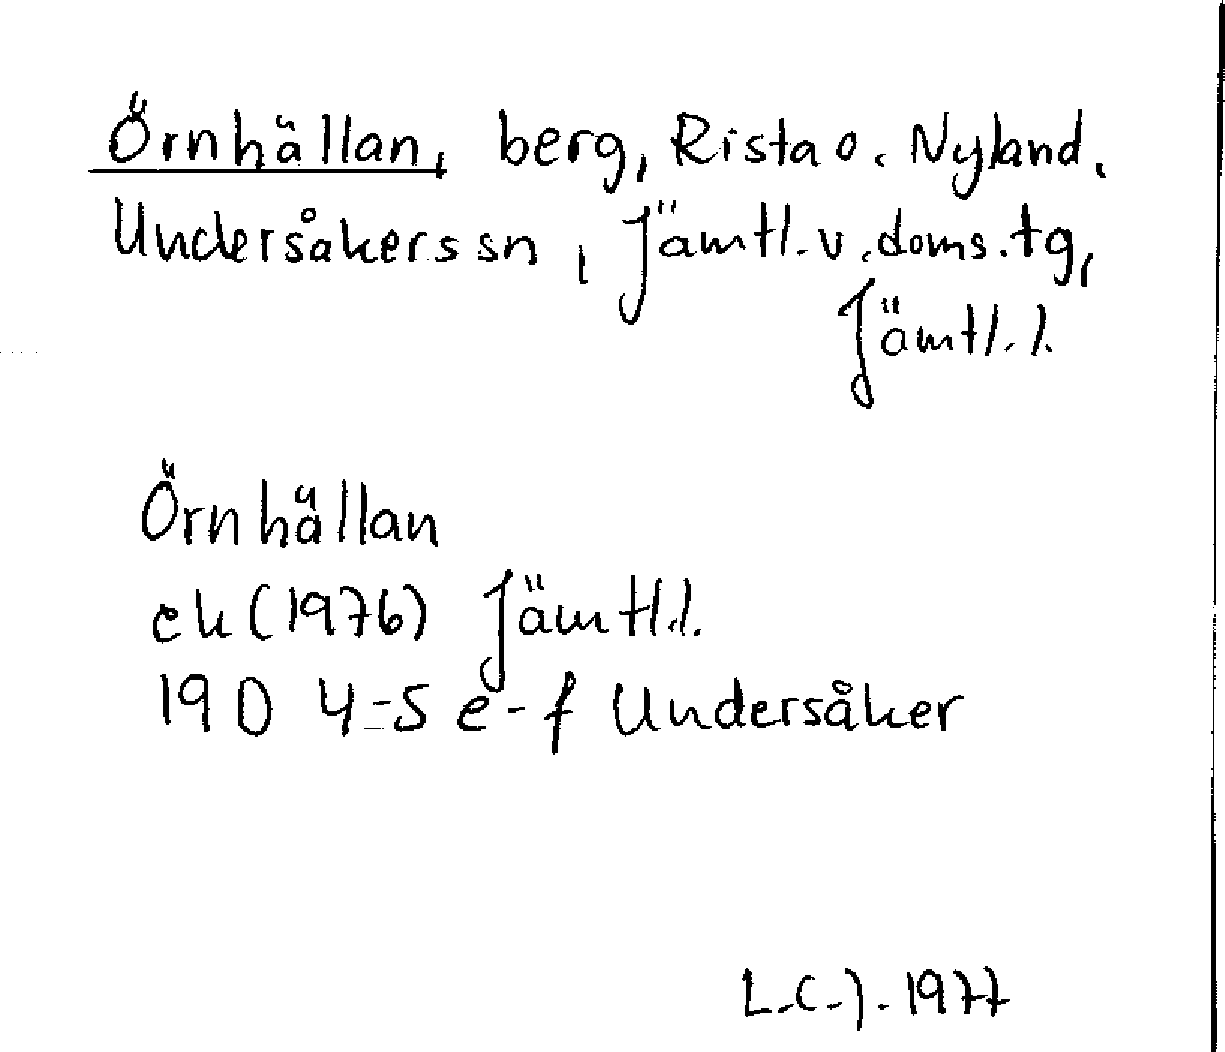 Örnhällan, berg, Rista o. Nyland.
Undersåkers sn, Jämtl. v. doms. tg,
Jämtl. l.
Örnhällan
ek (1976) Jämtl.l.
19 D 4-5 e-f Undersåker
L.C.J. 1977